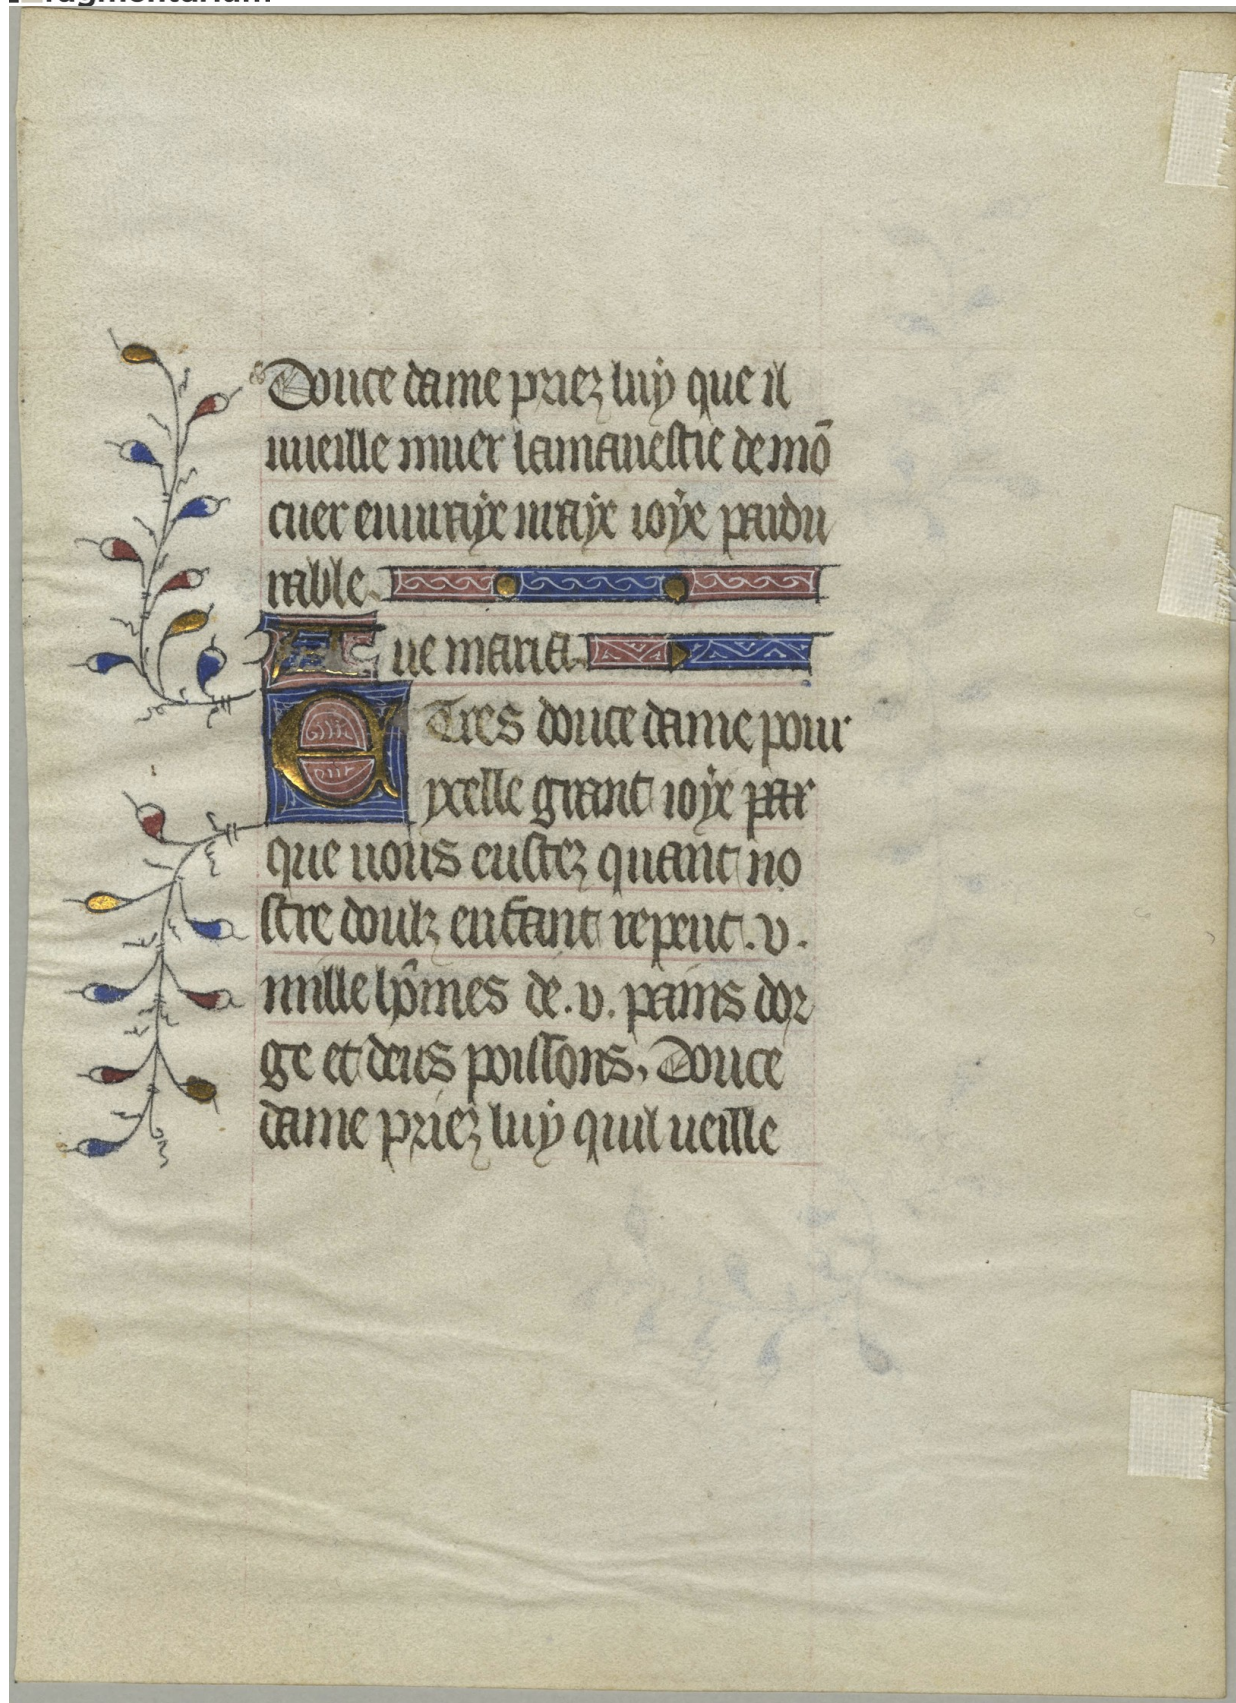 Douce dame priez luy que il
uueille muer lamauestie de mō
cuer en uraye uraye ioye pardu
rable.
Aue maria.
E Tres douce dame pour
ycelle grant ioye par
que uous eustez quant no
stre doulz enfant reput .v.
mille hōmes de .v. pains dor
ge et deus poissons, Douce
dame priez luy quil ueille